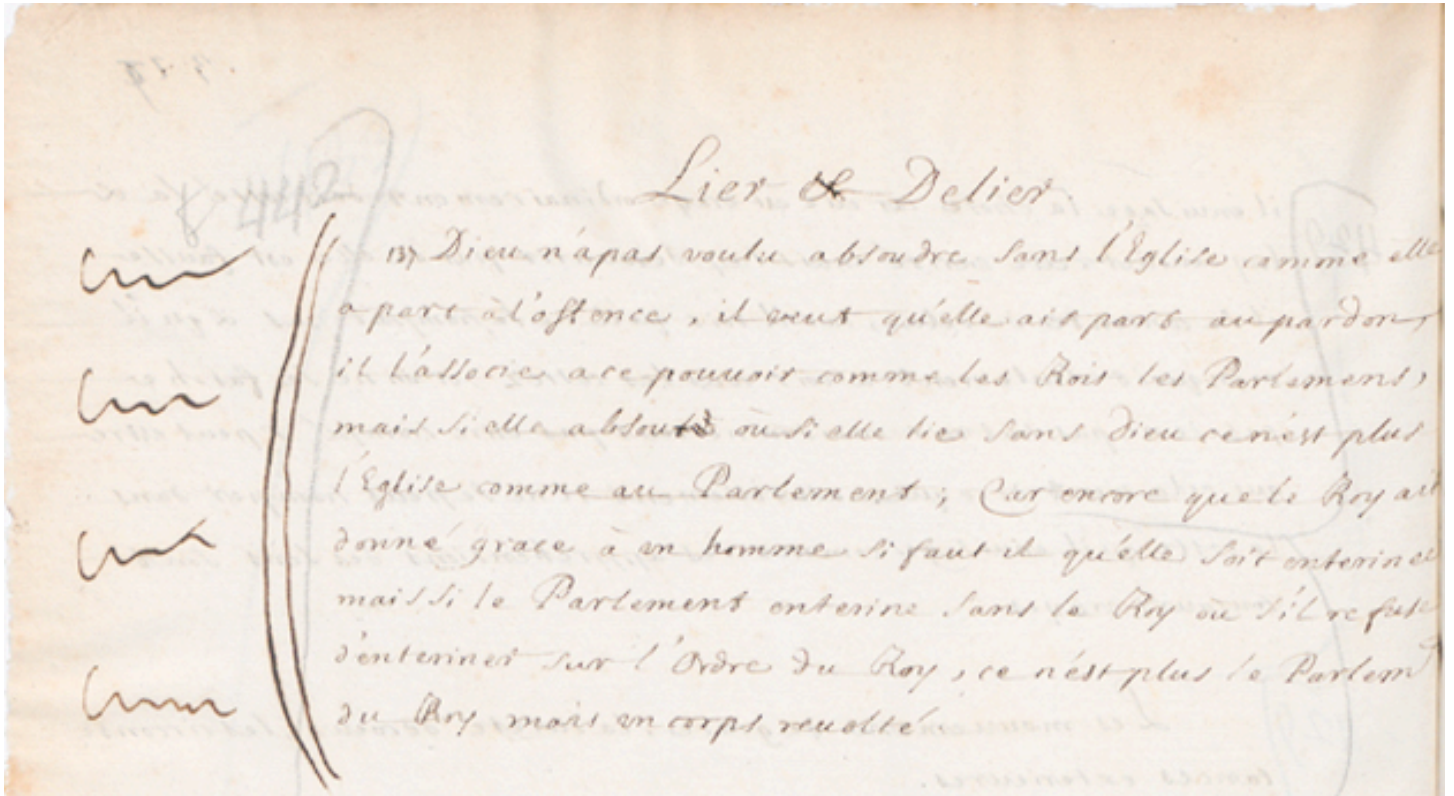 442
Lier & Delier
137 Dieu n'a pas voulu absoudre sans l'Eglise comme elle
a part a l'offence, il veut qu'elle ait part au pardon,
il l'associe a ce pouvoir comme les Rois les Parlemens,
mais si elle absout ou si elle lie sans Dieu ce n'est plus
l'Eglise comme au Parlement; Car encore que le Roy ait
donné grace à un homme si faut il qu'elle soit enterinee
mais si le Parlement enterine sans le Roy ou s'il refuse
d'enteriner sur l'Ordre du Roy, ce n'est plus le Parlemt
du Roy mais un corps revolté